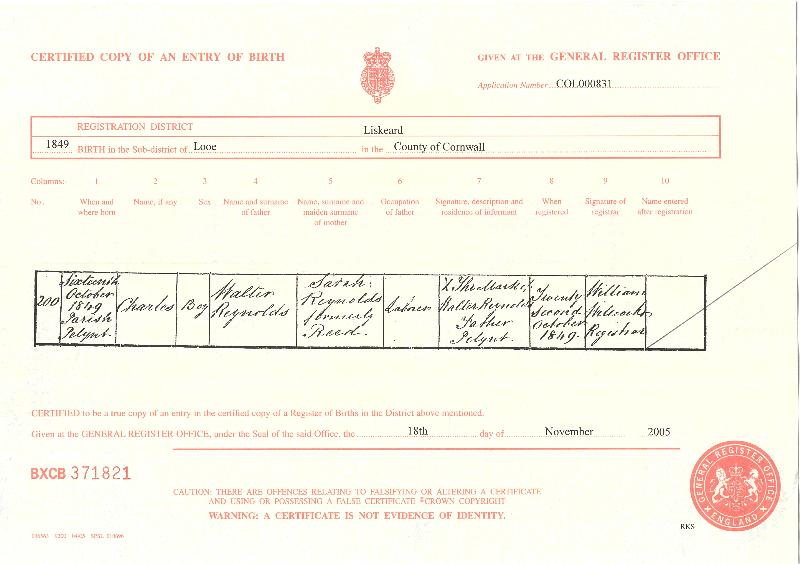 CERTIFIED COPY OF AN ENTRY OF BIRTH
GIVEN AT THE GENERAL REGISTER OFFICE
Application Number COL000831
REGISTRATION DISTRICT Liskeard
1849 BIRTH in the Sub-district of Looe in the County of Cornwall
Columns: 1 2 3 4 5 6 7 8 9 10
No. When and where born Name, if any Sex Name and surname of father Name, surname and maiden surname of mother Occupation of father Signature, description and residence of informant When registered Signature of registrar Name entered after registration
200 Sixteenth October 1849 Parish Pelynt Charles Boy Walter Reynolds Sarah Reynolds formerly Reed Laborer X The Mark of Walter Reynolds Father Pelynt. Twenty Second October 1849. William Registrar
CERTIFIED to be a true copy of an entry in the certified copy of a Register of Births in the District above mentioned.
Given at the GENERAL REGISTER OFFICE, under the Seal of the said Office, the 18th day of November 2005
BXCB 371821
CAUTION: THERE ARE OFFENCES RELATING TO FALSIFYING OR ALTERING A CERTIFICATE
AND USING OR POSSESSING A FALSE CERTIFICATE ©CROWN COPYRIGHT
WARNING: A CERTIFICATE IS NOT EVIDENCE OF IDENTITY.
GENERAL REGISTER OFFICE
ENGLAND
RKS